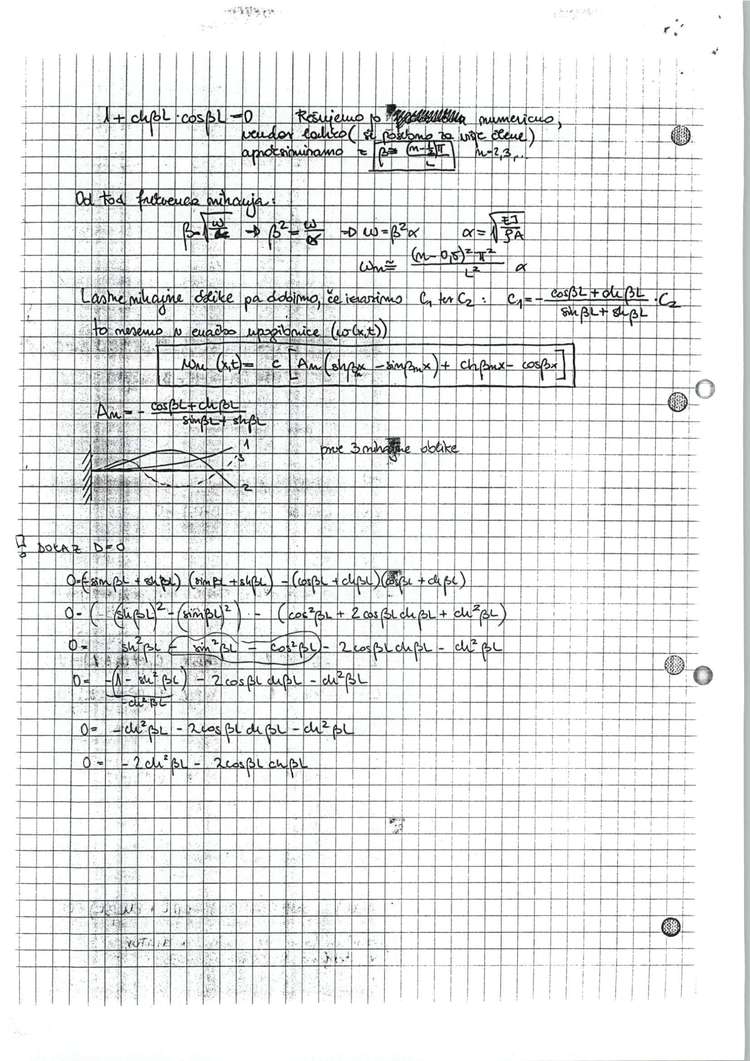 1 + chβL · cosβL = 0 Rešujemo jo numerično,
vendar lahko (še posebno za višje člene)
aproksimiramo = β = (n-½)π / L n=2,3,...
Od tod frekvence nihanja:
β = √(ω/α) → β² = ω/α → ω = β²α α = √(EJ/ρA)
ωn ≅ (n-0,5)² π² / L² α
Lastne nihajne oblike pa dobimo, če izrazimo C₁ ter C₂ : C₁ = - (cosβL + chβL)/(sinβL + shβL) · C₂
to nesemo v enačbo upogibnice (w(x,t))
wn (x,t) = c [An (shβnx - sinβnx) + chβnx - cosβx]
An = - (cosβL + chβL)/(sinβL + shβL)
1
3
2
prve 3 nihajne oblike
DOKAZ D=0
0 = (-sinβL + shβL) (sinβL + shβL) - (cosβL + chβL)(cosβL + chβL)
0 = ((shβL)² - (sinβL)²) - (cos²βL + 2cosβL chβL + ch²βL)
0 = sh²βL - sin²βL - cos²βL - 2cosβL chβL - ch²βL
0 = -(1 - sh²βL) - 2cosβL chβL - ch²βL
-ch²βL
0 = -ch²βL - 2cosβL chβL - ch²βL
0 = -2ch²βL - 2cosβL chβL